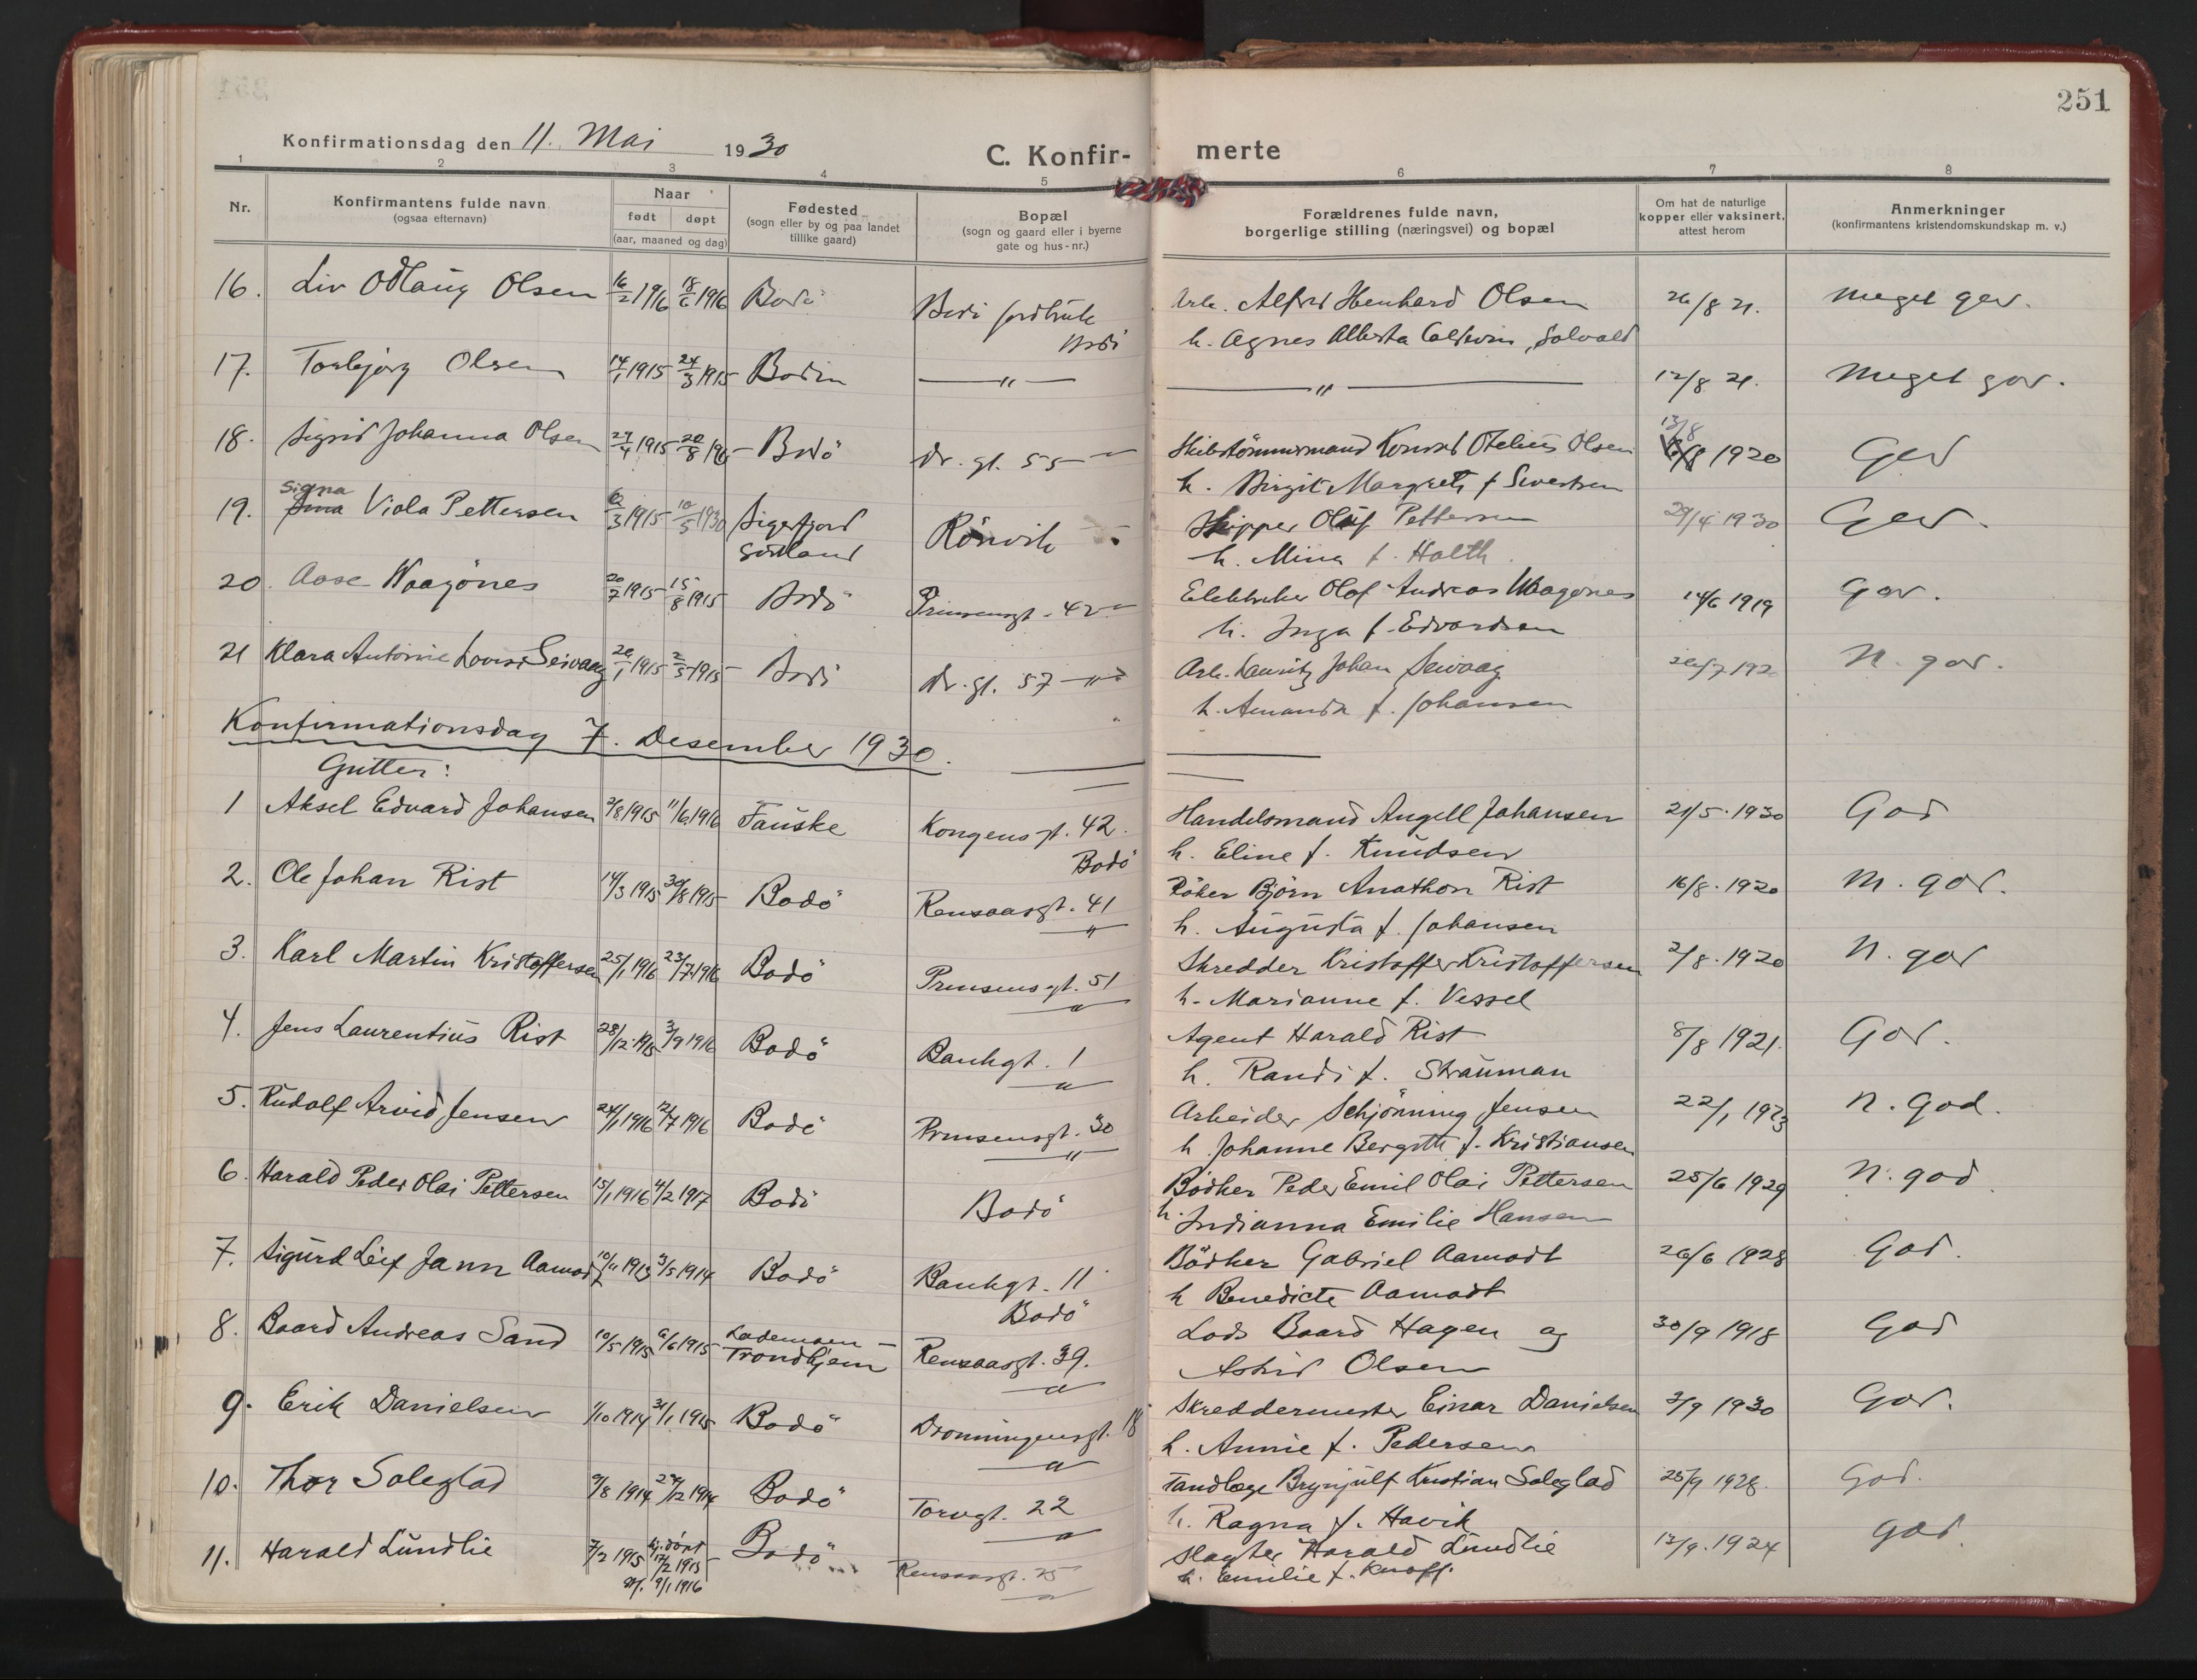 251
Konfirmationsdag den 11. Mai 1930
C. Konfir- merte
1 2 3 4 5 6 7 8
Nr.
Konfirmantens fulde navn
(ogsaa efternavn)
Naar
født døpt
(aar, maaned og dag)
Fødested
(sogn eller by og paa landet
tillike gaard)
Bopæl
(sogn og gaard eller i byerne
gate og hus-nr.)
Forældrenes fulde navn,
borgerlige stilling (næringsvei) og bopæl
Om hat de naturlige
kopper eller vaksinert,
attest herom
Anmerkninger
(konfirmantens kristendomskundskap m. v.)
16. Liv Odlaug Olsen 16/2 1916 18/6 1916 Bodö Arb. Alfred Henhard Olsen 26/8 21. meget god.
h. Agnes Alberta Solvold
17. Torbjørg Olsen 14/1 1915 24/3 1915 Bodin — " — — " — 12/8 21. Meget god.
18. Sigrid Johanna Olsen 29/4 1915 20/8 1915 Bodö dr. gt. 55 — " Skibstömmermand Konrad Otelius Olsen 13/8 1920 God
h. Birgit Margrete f Sivertsen
19. Signa Viola Pettersen 6/3 1915 10/5 1930 Sigerfjord Rönvik Skipper Oluf Pettersen 29/4 1930 God.
Sortland h. Mina f. Holth
20. Aase Waagönes 20/7 1915 15/8 1915 Bodö Prinsensgt. 42 — " Olaf Andreas Waagönes 14/6 1919 God.
h. Inga f. Edvardsen
21 Klara Antonie Lovise Seivaag 1915 2/5 1915 Bodö dr. gt. 57 — " — Arb. Lauritz Johan Seivaag 26/7 1920 N. god.
h. Amanda f. Johansen
Konfirmationsdag 7. Desember 1930.
Gutter:
1 Aksel Edvard Johansen 2/8 1915 11/6 1916 Fauske Kongensgt. 42. Handelsmand Angell Johansen 21/5. 1930 God
Bodö h. Eline f. Knudsen
2. Ole Johan Rist 14/3 1915 30/8 1915 Bodö Rensaasgt. 41 Björn Anathon Rist 16/8. 1920 M. god.
" h. Augusta f. Johansen
3. Karl Martin Kristoffersen 25/1 1916 23/7 1916 Bodö Prinsensgt. 51 Skredder Kristoffer Kristoffersen 2/8. 1920 N. god
" h. Marianne f. Vessel
4. Jens Laurentius Rist 28/12 1915 3/9 1916 Bodö Bankgt. 1 Agent Harald Rist 8/8 1921. God.
" h. Randi f. Strauman
5. Rudolf Arvid Jensen 24/1 1916 12/7 1916 Bodö Prinsensgt. 30 Arbeider Schjönning Jensen 22/1 1923 N. God.
" h Johanne Bergitte f. Kristiansen
6. Harald Peder Olai Pettersen 15/1 1916 4/2 1917 Bodö Bodö Bödker Peder Emil Olai Pettersen 25/6 1929 N. god
h. Indianna Emilie Hansen
7. Sigurd Leif Jann Aamodt 10/11 1913 3/5 1914 Bodö Bankgt. 11 Bödker Gabriel Aamodt 26/6 1928 God.
Bodö h Benedicte Aamodt
8. Baard Andreas Sand 10/5 1915 6/6 1915 Lademoen – Rensaasgt. 39. Lods Baard Hagen og 30/9 1918 God
Trondhjem " Astrid Olsen
9. Erik Danielsen 1/10 1914 31/1 1915 Bodö Dronningensgt. 18 Skreddermester Einar Danielsen 3/9 1930 God.
" h. Annie f. Pedersen
10. Thor Soleglad 9/8 1914 27/12 1914 Bodö Torvgt. 22 Tandlæge Brynjulf Kristian Soleglad 25/9 1928. God.
" h. Ragna f. Havik
11. Harald Lundlie 7/2 1915 hj. döpt Bodö Rensaasgt. 25 Slagter Harald Lundlie 13/9. 1924 God
17/2 1915 " h. Emilie f. Knoff.
st. 9/1 1916